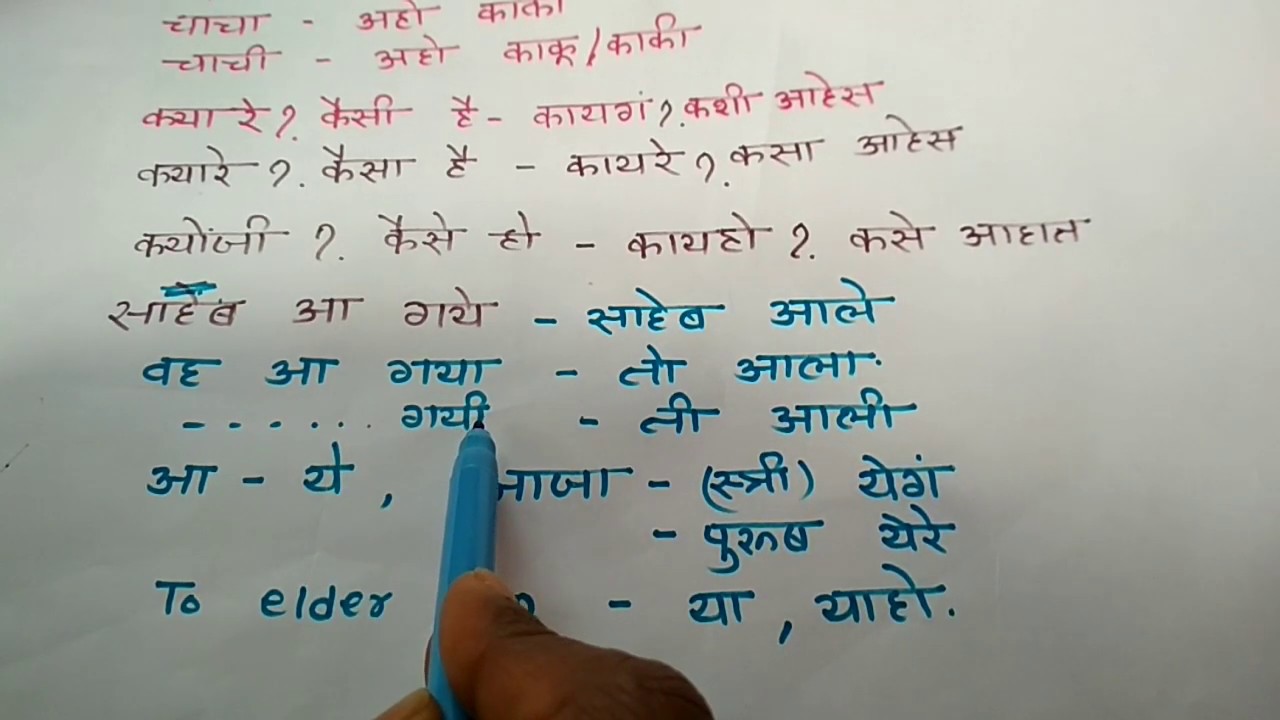 चाचा - अहो काका
चाची - अहो काकू/काकी
क्या रे?. कैसी है - कायगं?. कशी आहेस
क्यारे ?. कैसा है - कायरे?. कसा आहेस
क्योंजी ?. कैसे हो - कायहो ?. कसे आहात
साहेब आ गये - साहेब आले
वह आ गया - तो आला.
- - . . . . गयी - ती आली
आ - ये , - (स्त्री) येगं
- पुरुष येरे
To elder - या , याहो.